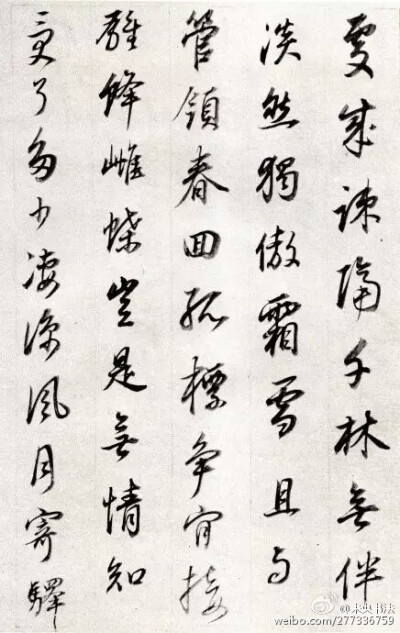 雯成疎隔千林無伴
淡然獨傲霜雪且与
管領春回孤標争肯接
雄蜂雌蝶豈是無情知
受了多少凄涼風月寄驛
@未央书法
weibo.com/277336759